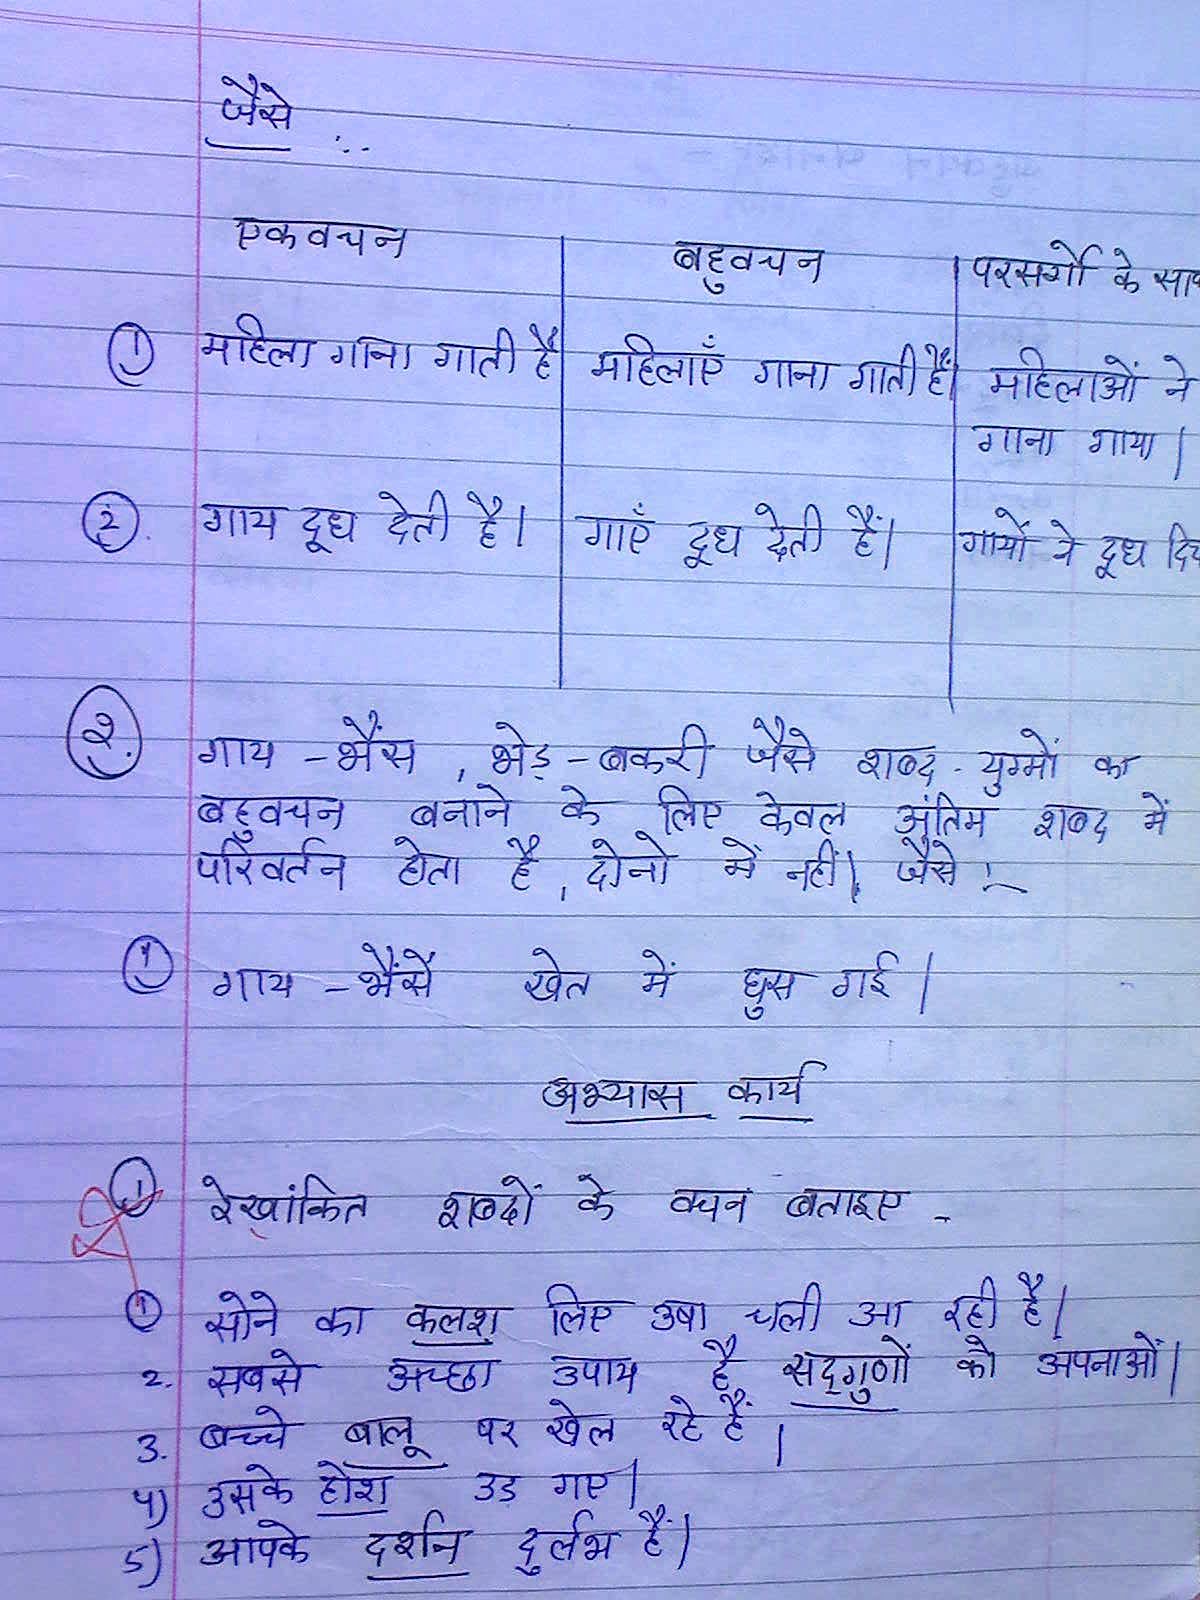 जैसे :-
एकवचन | बहुवचन | परसर्गो के साथ
① महिला गाना गाती है | महिलाएँ गाना गाती हैं| महिलाओं ने
गाना गाया |
② गाय दूध देती है। | गाएँ दूध देती हैं। | गायों ने दूध
२. गाय - भैंस , भेड़ - बकरी जैसे शब्द - युग्मों का
बहुवचन बनाने के लिए केवल अंतिम शब्द में
परिवर्तन होता है , दोनो में नहीं। जैसे :-
① गाय - भैंसें खेत में घुस गई |
अभ्यास कार्य
① रेखांकित शब्दों के वचन बताइए -
① सोने का कलश लिए उषा चली आ रही है|
2. सबसे अच्छा उपाय है सद्गुणों को अपनाओं|
3. बच्चे बालू पर खेल रहे हैं |
4) उसके होश उड़ गए|
5) आपके दर्शन दुर्लभ हैं|